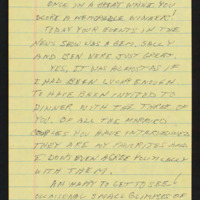 ONCE IN A GREAT WHILE YOU
SCORE A MEMORABLE WINNER!
TODAY YOUR EVENTS IN THE
NEWS SHOW WAS A GEM. SALLY
AND BEN WERE JUST GREAT.
YES, IT WAS ALMOST AS IF
I HAD BEEN LUCKY ENOUGH
TO HAVE BEEN INVITED TO
DINNER WITH THE THREE OF
YOU. OF ALL THE MARRIED
COUPLES YOU HAVE INTRODUCED
THEY ARE MY FAVORITES AND
I DON'T EVEN AGREE POLITICALLY
WITH THEM.
AM HAPPY TO GET TO SEE
OCCASIONAL SMALL GLIMPSES OF